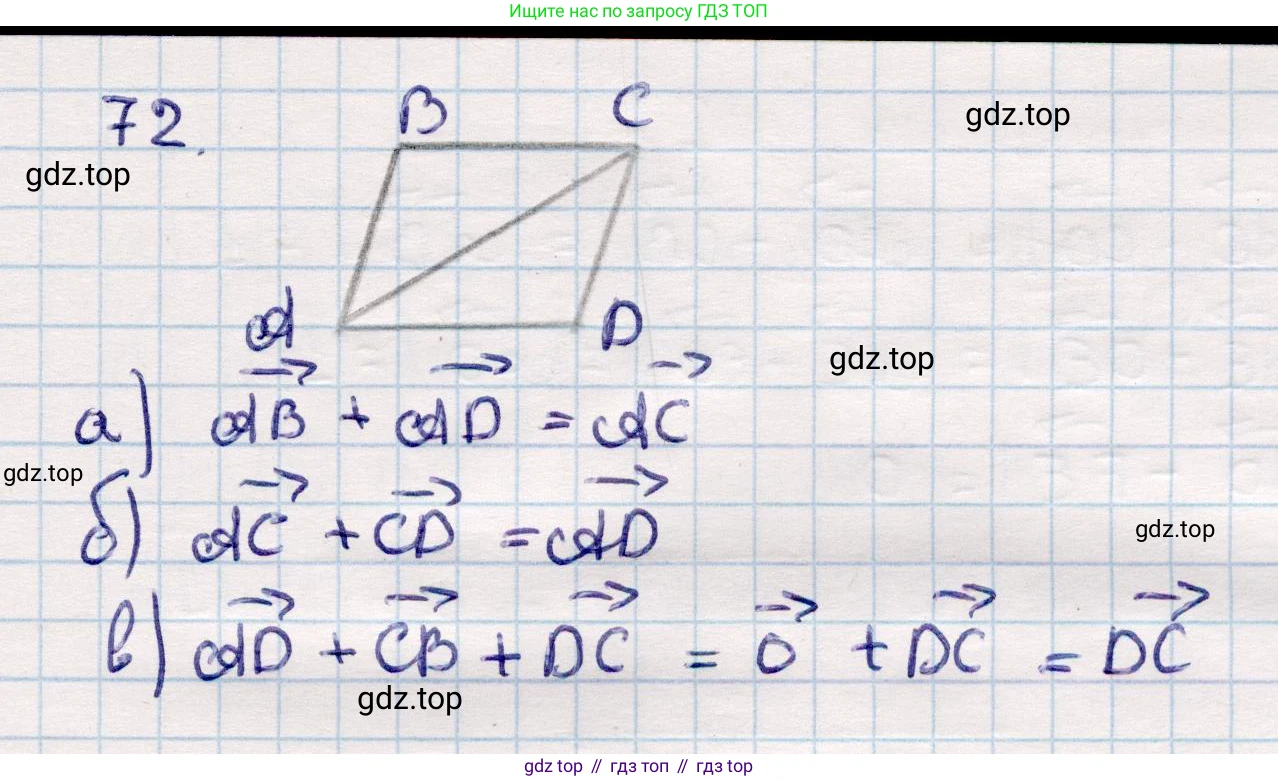 Ищите нас по запросу ГДЗ ТОП
72.
B C
gdz.top
gdz.top
A D
gdz.top
а) →AB + →AD = →AC
gdz.top
б) →AC + →CD = →AD
gdz.top
в) →AD + →CB + →DC = →0 + →DC = →DC
gdz.top
gdz top // гдз топ // гдз top